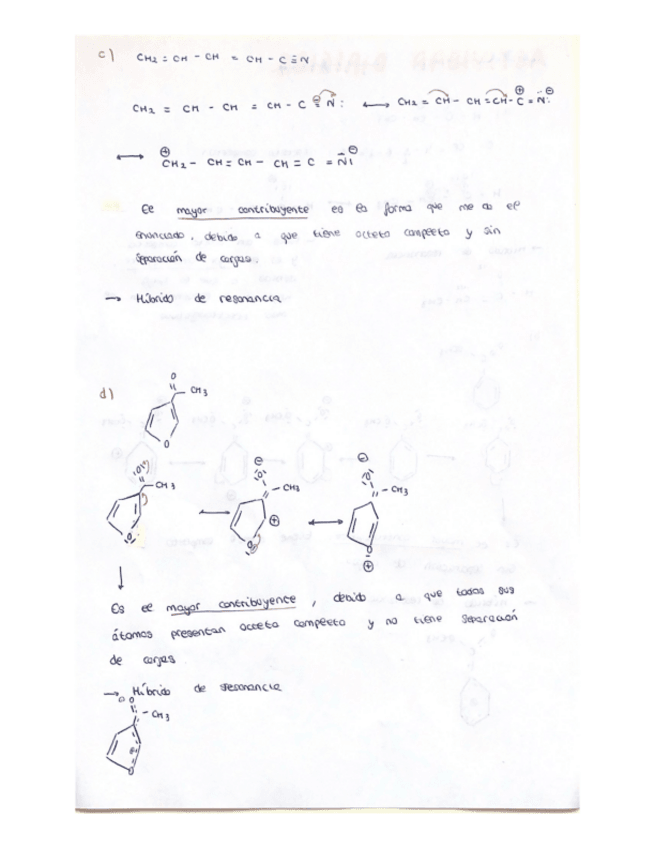 c) CH2 = CH - CH = CH - C ≡ N
CH2 = CH - CH = CH - C ≡ N: ⟷ CH2 = CH - CH = CH - C⊕ = N:⊖
⟷ ⊕CH2 - CH = CH - CH = C = N⊖
El mayor contribuyente es la forma que me da el
enunciado, debido a que tiene octeto completo y sin
separación de cargas.
→ Híbrido de resonancia
d) O
CH3
O
O - CH3 ⟷ ⊖ O - CH3 ⊕ ⟷ ⊖ O - CH3
O O O ⊕
Es el mayor contribuyente, debido a que todos sus
átomos presentan octeto completo y no tiene separación
de cargas
→ Híbrido de resonancia
O - CH3
⊕
O